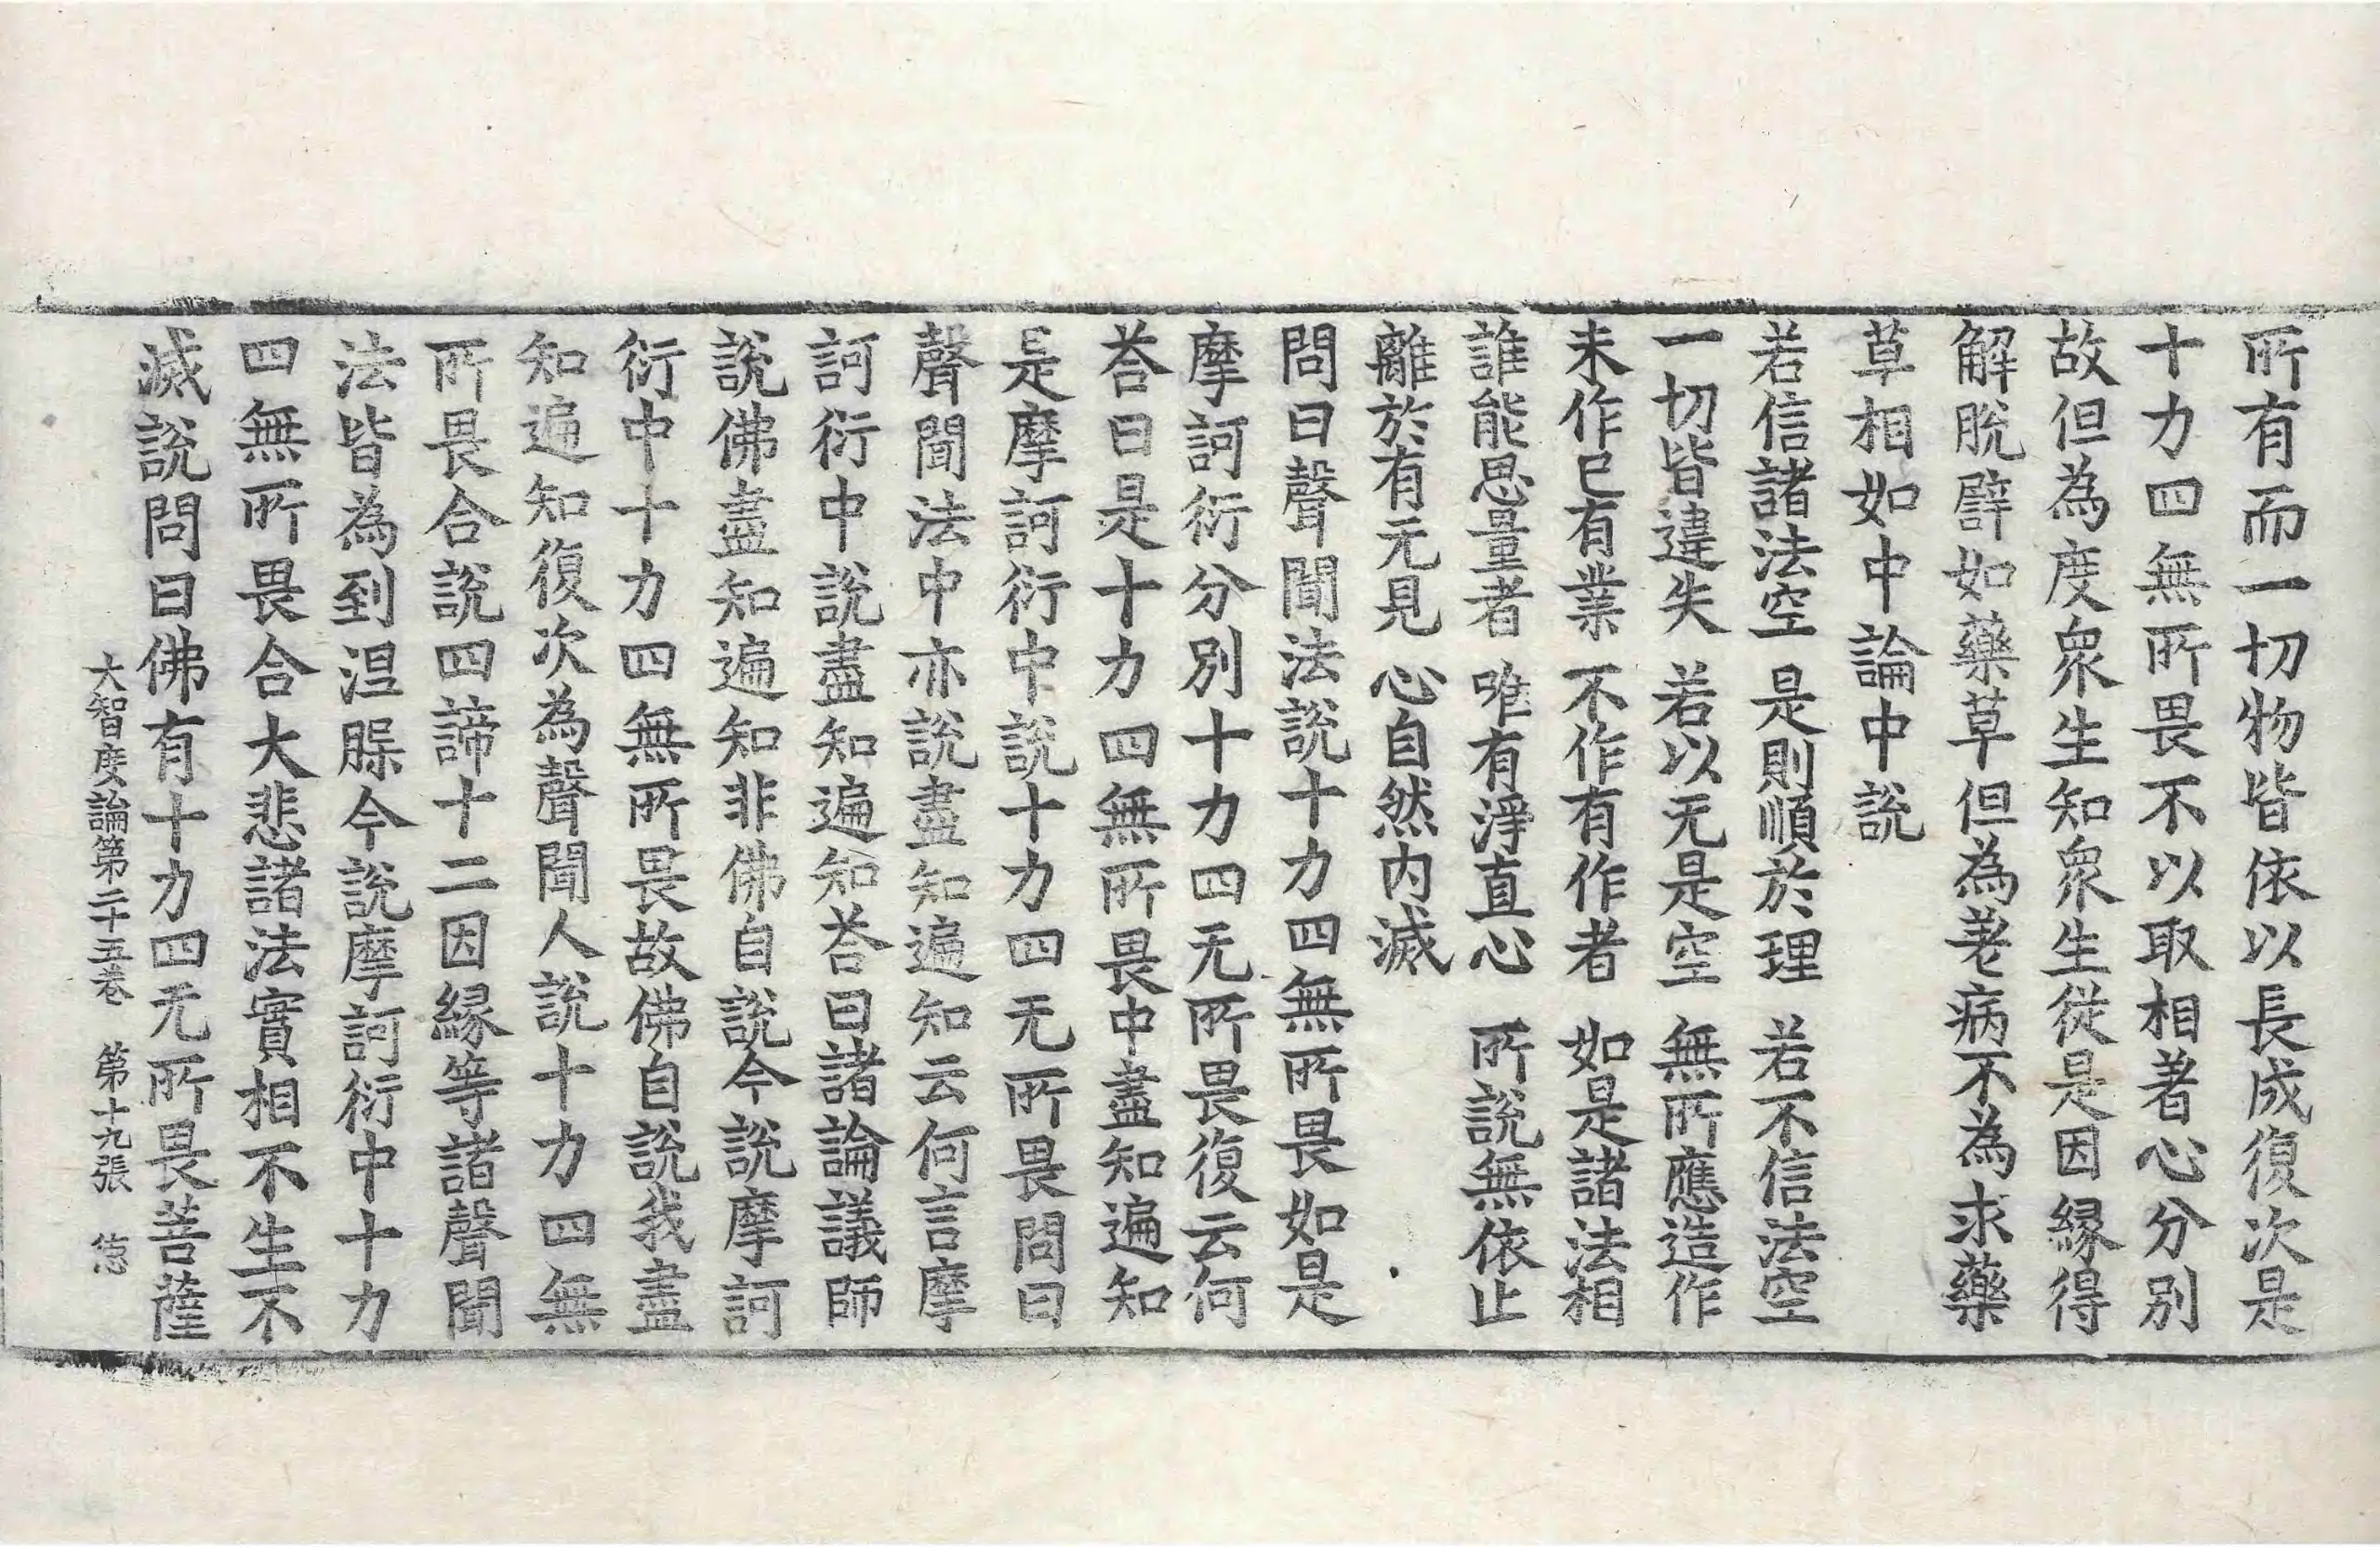 所有而一切物皆依以長成復次是
十力四無所畏不以取相著心分別
故但為度衆生知衆生從是因緣得
解脫譬如藥草但為差病不為求藥
草相如中論中說
若信諸法空　是則順於理　若不信法空
一切皆違失　若以无是空　無所應造作
未作已有業　不作有作者　如是諸法相
誰能思量者　唯有淨直心　所說無依止
離於有无見　心自然内滅
問曰聲聞法說十力四無所畏如是
摩訶衍分別十力四无所畏復云何
荅曰是十力四無所畏中盡知遍知
是摩訶衍中說十力四无所畏問曰
聲聞法中亦說盡知遍知云何言摩
訶衍中說盡知遍知荅曰諸論議師
說佛盡知遍知非佛自說今說摩訶
衍中十力四無所畏故佛自說我盡
知遍知復次為聲聞人說十力四無
所畏合說四諦十二因緣等諸聲聞
法皆為到涅槃今說摩訶衍中十力
四無所畏合大悲諸法實相不生不
滅說問曰佛有十力四无所畏菩薩
大智度論第二十五卷　第十九張